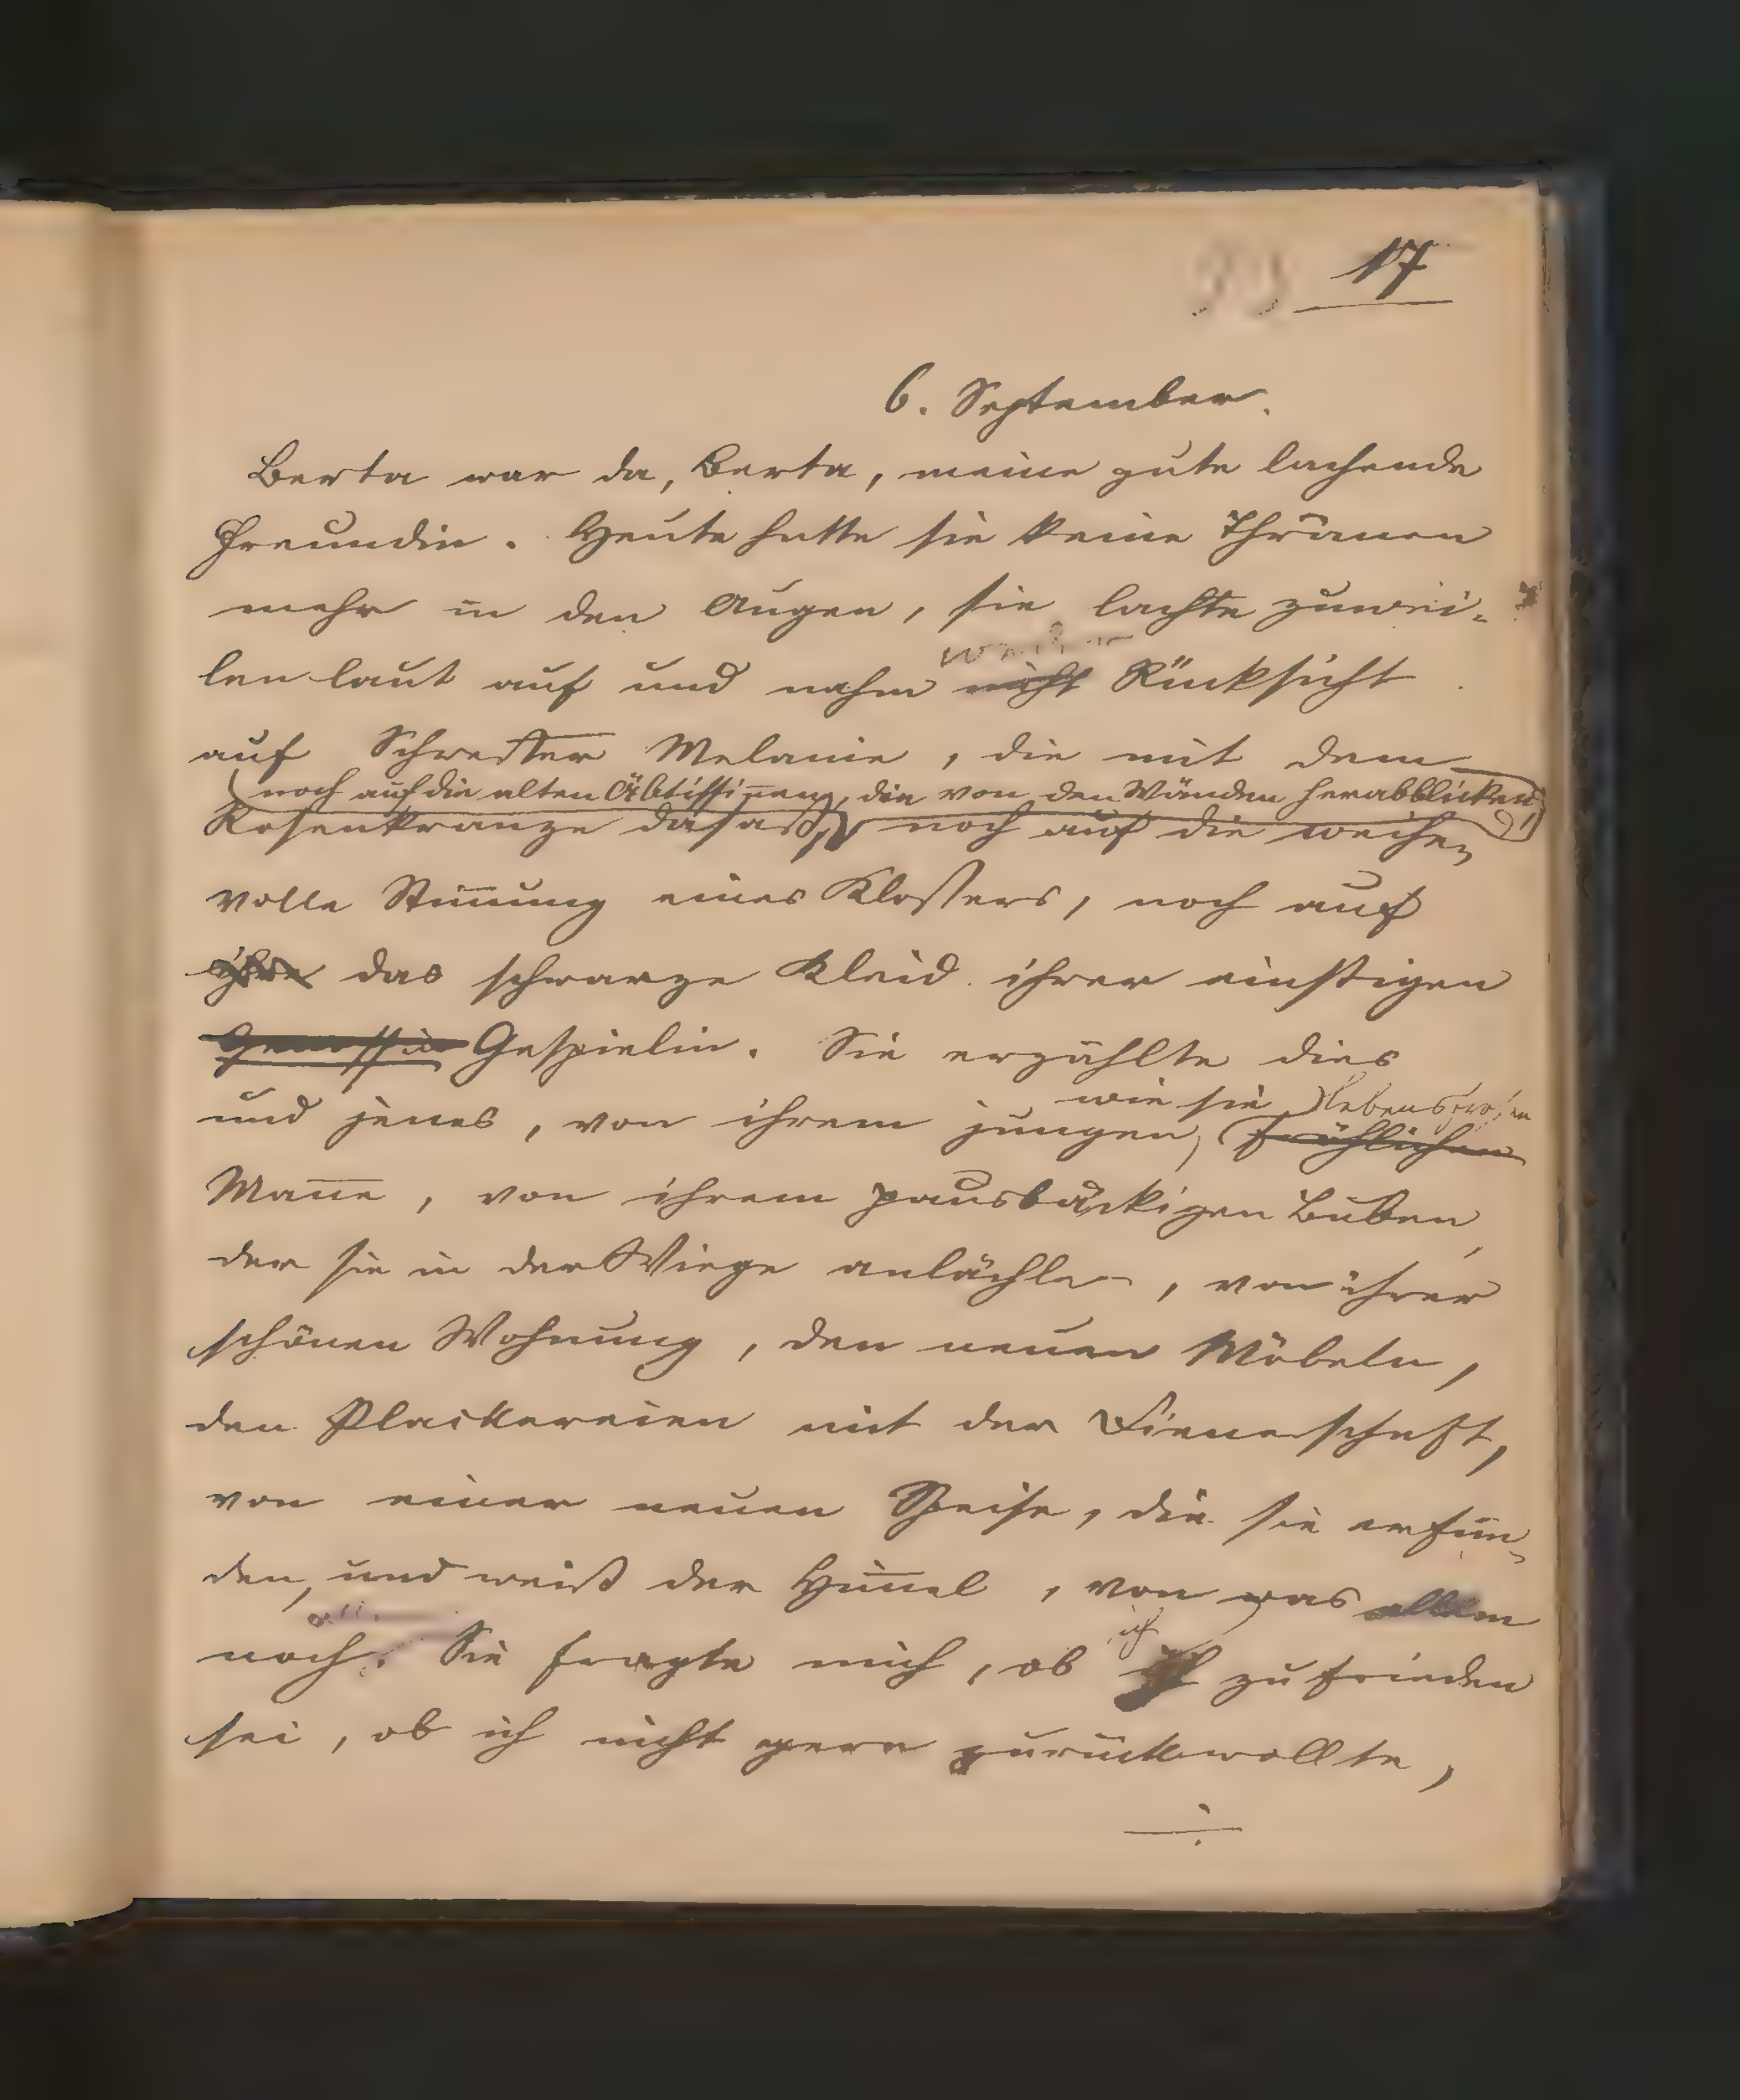 17
6. September.
Berta war da, Berta, meine gute lachende
Freundin. Heute hatte sie keine Thränen
mehr in den Augen, sie lachte zuwei-
weder
len laut auf und nahm nicht Rücksicht
auf Schwester Melanie, die mit dem
noch auf die alten Äbtissinnen, die von den Wänden herabblicken,
Rosenkranze dasaß, noch auf die weihe-
volle Stim̅ung eines Klosters, noch auf
ihre das schwarze Kleid ihrer einstigen
Genossin Gespielin. Sie erzählte dies
wie sie lebensfrohen
und jenes, von ihrem jungen, fröhlichen
Man̅e, von ihrem pausbäckigen Buben,
der sie in der Wiege anlächle, von ihrer
schönen Wohnung, den neuen Möbeln,
den Plackereien mit der Dienerschaft,
von einer neuen Speise, die sie erfun-
den, und weiß der Him̅el, von was allem
noch. Sie fragte mich, ob ich zufrieden
ich
sei, ob ich nicht gern zurückwollte,